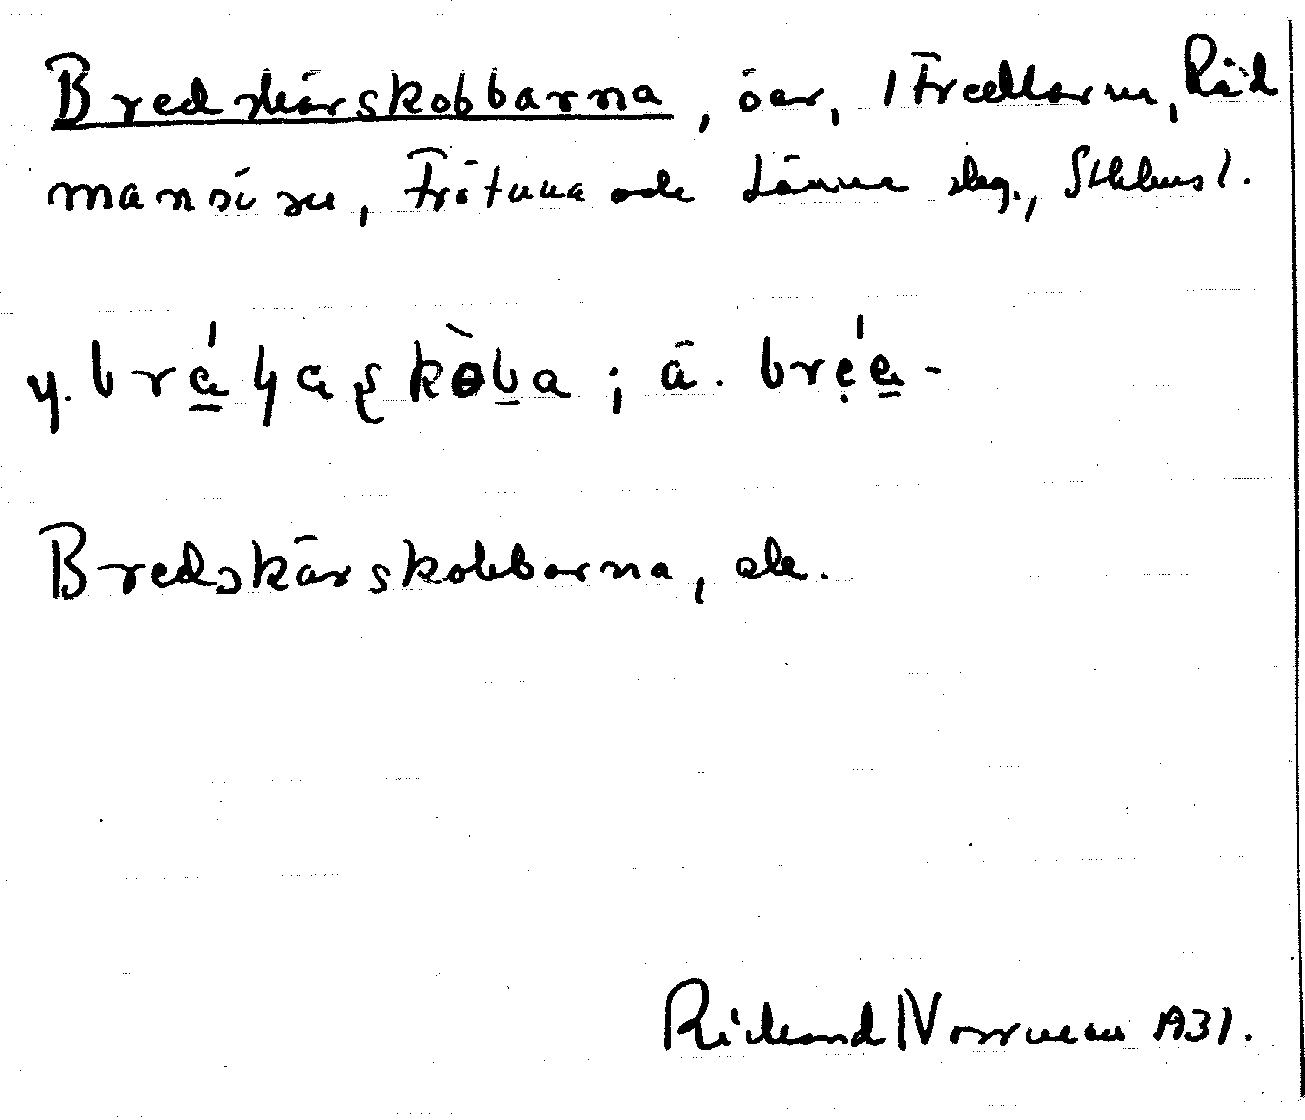 Bredskärskobbarna, öar, i Fredkarm, Råd
mansö su, Frötuna och Länna skeg., Sthlms l.
y. brá̱ɥaʂkòḇa ; ä. brẹ́a̱-
Bredskärskobbarna, ek.
Rickard Norrman 1931.